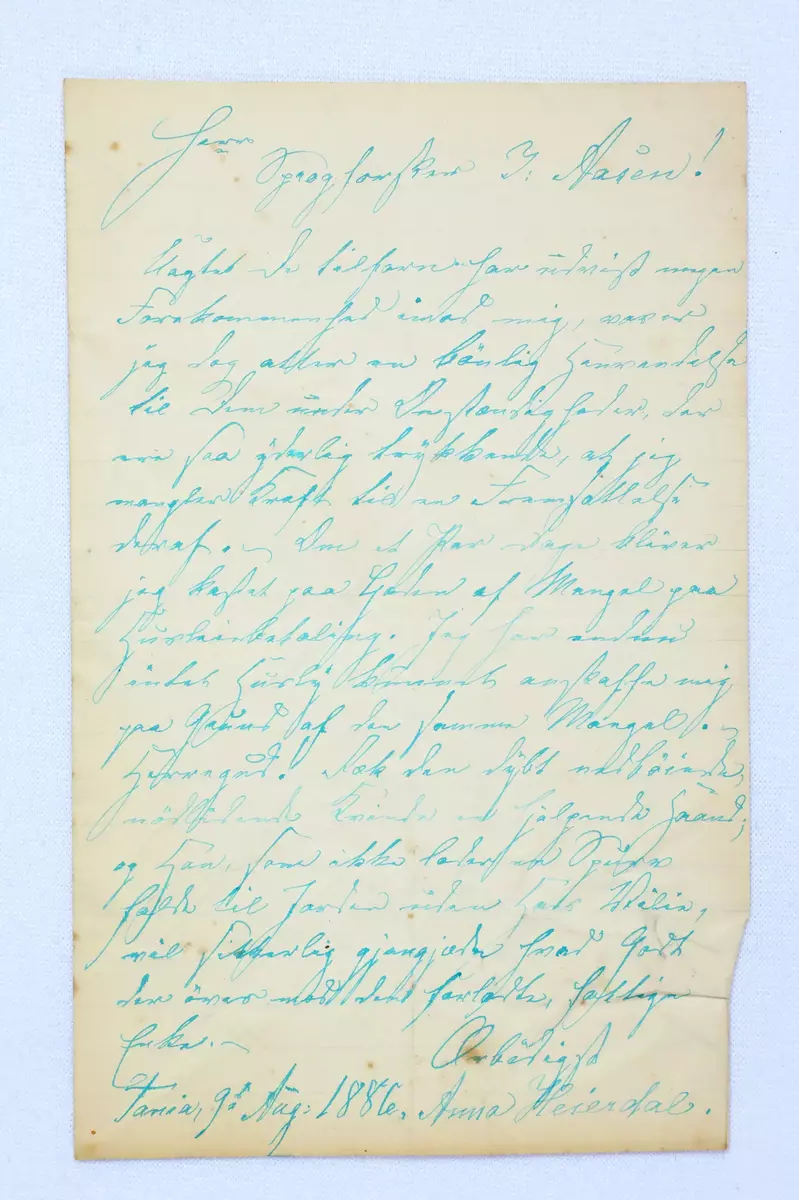 Herr
Sprogforsker I: Aasen!
Uagtet De tilforn har udvist megen
Forekommenhed imod mig, vover
jeg dog atter en bönlig Henvendelse
til Dem under Omstændigheder, der
ere saa yderlig trykkende, at jeg
mangler Kraft til en Fremstillelse
deraf. – Om et Par Dage bliver
jeg kastet paa Gaden af Mangel paa
Huusleiebetaling. Jeg har endnu
intet Husly kunnet anskaffe mig
paa Grund af den samme Mangel. –
Herregud! Ræk den dybt nedböiede,
nödlidende Kvinde en hjælpende Haand;
og Han, som ikke lader en Spurv
falde til Jorden uden Hans Villie,
vil sikkerlig gjengjælde hvad Godt
der öves mod den forladte, fattige
Enke. –
Ærbödigst
9de Aug: 1886. Anna Heierdal.